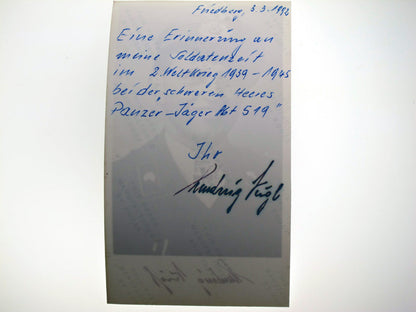 Friedberg, 3.3.1992
Eine Erinnerung an
meine Soldatenzeit
im 2. Weltkrieg 1939-1945
bei der „schweren Heeres
Panzer-Jäger Abt 519"
Ihr
Ludwig